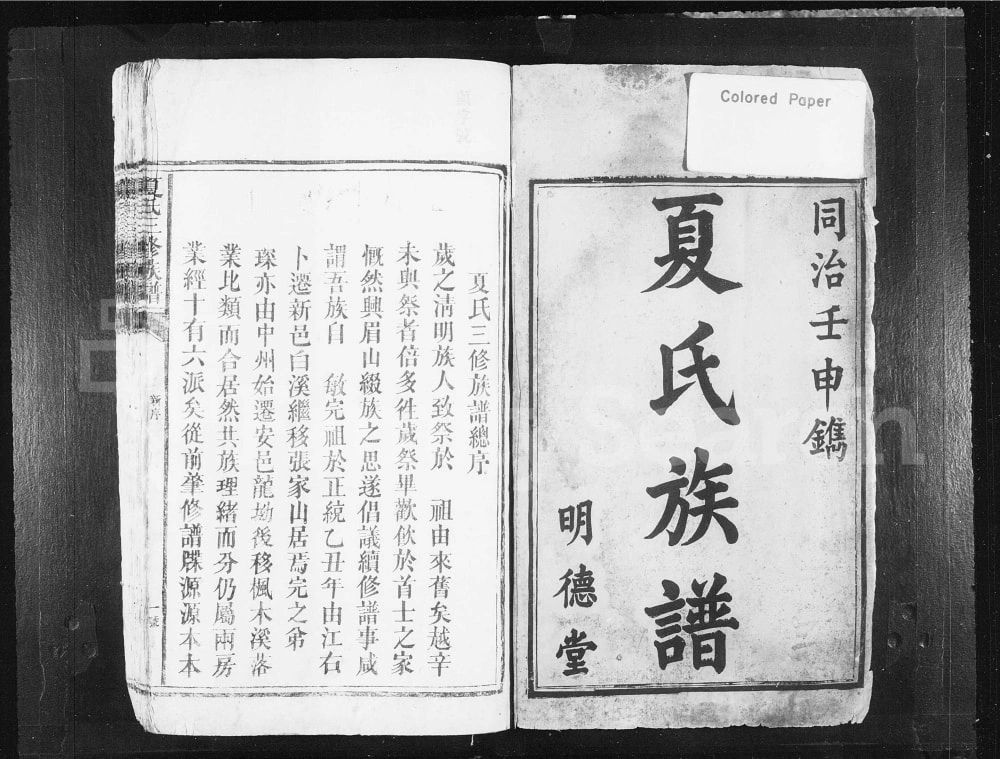 Colored Paper
同治壬申鐫
夏氏族譜
明德堂
夏氏三修族譜總序
歲之淸明族人致祭於 祖由來舊矣越辛
未與祭者倍多徃歲祭畢歡飲於首士之家
慨然興眉山綴族之思遂倡議續修譜事咸
謂吾族自 敏完祖於正統乙丑年由江右
卜遷新邑白溪繼移張家山居焉完之弟
琛亦由中州始遷安邑龍坳後移楓木溪落
業比類而合居然共族理緒而分仍屬兩房
業經十有六派矣從前肇修譜牒源源本本
夏氏三修族譜
新序
一號